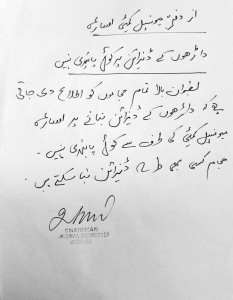 از دفتر میونسپل کمیٹی
داڑھوں کے ڈیزائن پر کوئی پابندی نہیں
بعنوان بالا تمام حجاموں کو اطلاع دی جاتی
ہے کہ داڑھوں کے ڈیزائن بنانے پر
میونسپل کمیٹی کی طرف سے کوئی پابندی نہیں۔
حجام کسی بھی طرح ڈیزائن بنا سکتے ہیں۔
CHAIRMAN